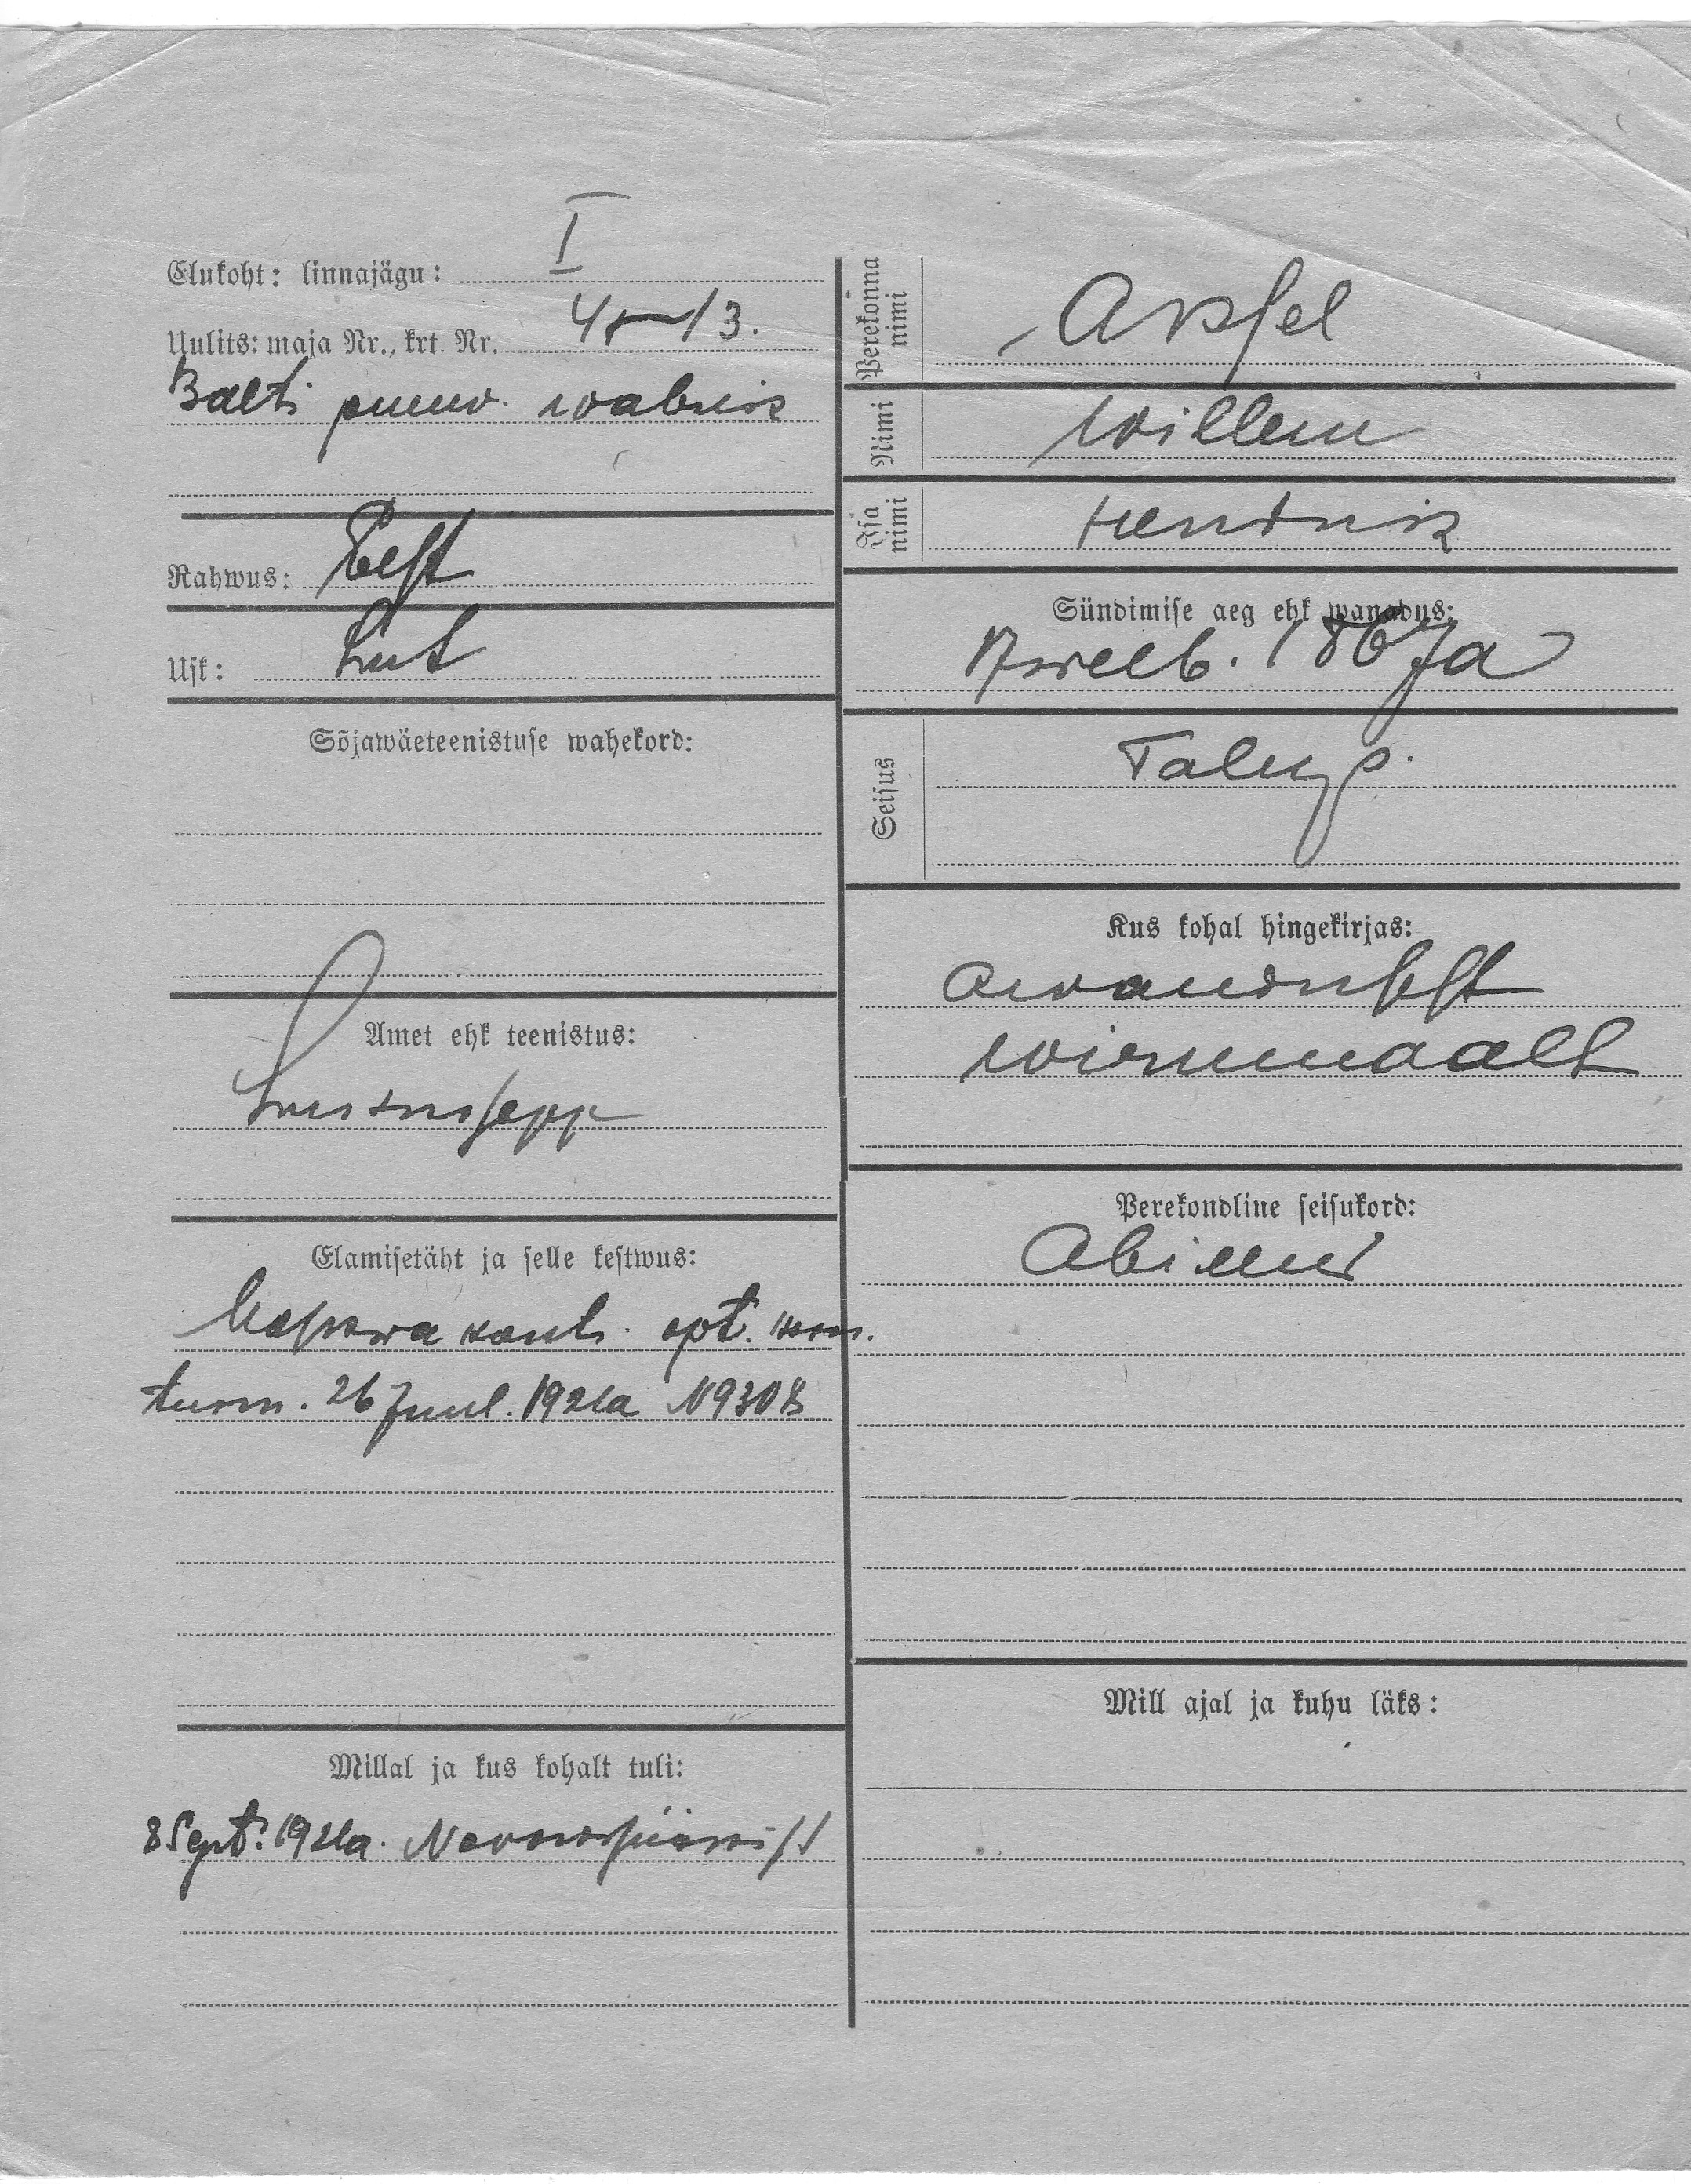 Elukoht: linnajägu: I
Uulits: maja Nr., krt. Nr. 45-13.
Balti puuw. wabrik
Rahwus: Eest
Usk: Lut
Sõjawäeteenistuse wahekord:
Amet ehk teenistus:
Lukussepp
Elamisetäht ja selle kestwus:
Moskwa kontr. opt. kom.
tunn. 26 Juul. 1921a N9308
Millal ja kus kohalt tuli:
8 Sept. 1921a.
Perekonna nimi
Aksel
Nimi
Willem
Isa nimi
Hendrik
Sündimise aeg ehk wanadus:
1867a
Seisus
Talup.
Kus kohal hingekirjas:
Awandusest
Wirumaalt
Perekondline seisukord:
Abielus
Mill ajal ja kuhu läks: